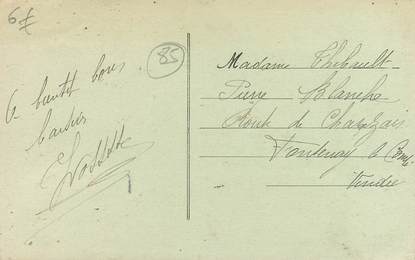 6 €
85
A bientôt bons
baisers
Madame Thibault
Pierre Blanche
Route de Charzais
Fontenay le Comte
Vendée